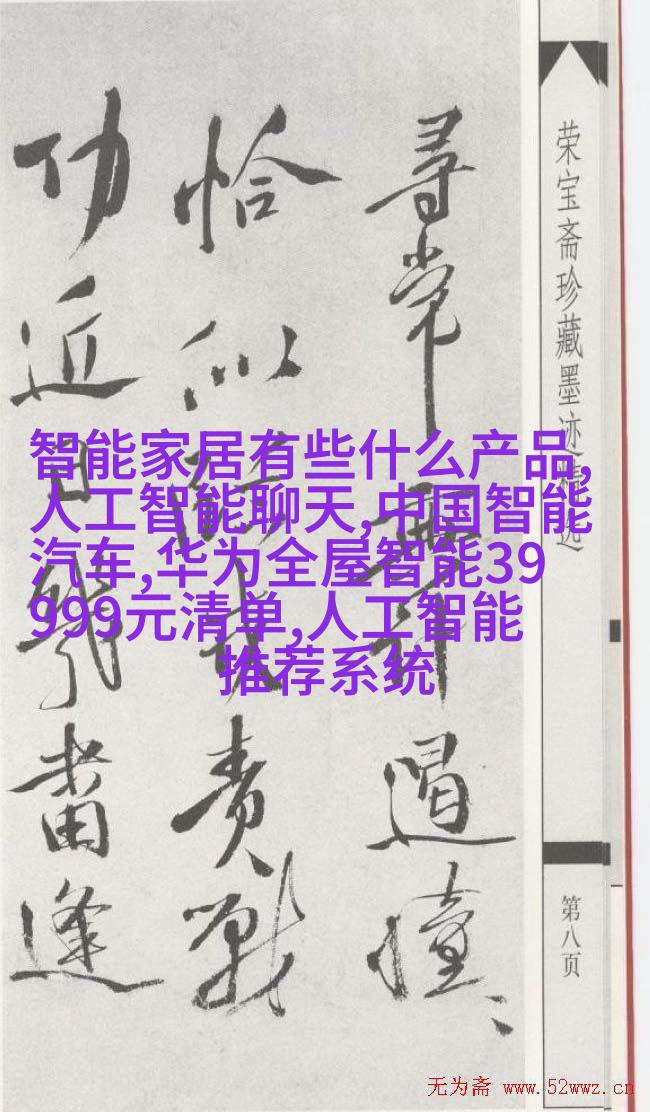 荣宝斋珍藏墨迹精选
第八页
尋常 遏憧、、
恰似 责戰
功近日 當逢
智能家居有些什么产品,
人工智能聊天,中国智能
汽车,华为全屋智能39
999元清单,人工智能
推荐系统
无为斋 www.52wwz.cn